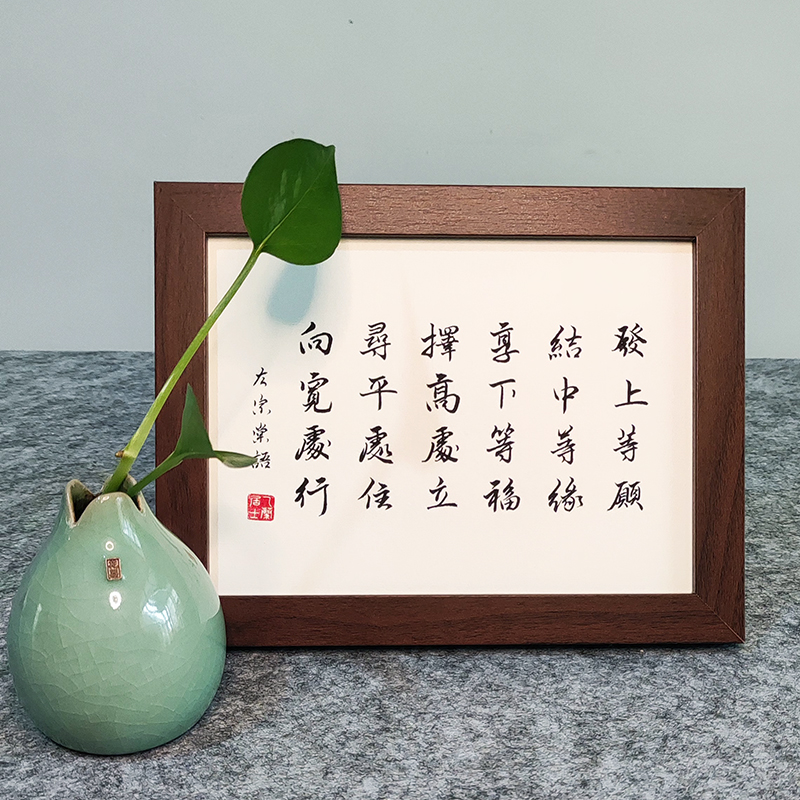 發上等願
結中等緣
享下等福
擇高處立
尋平處住
向寬處行
左宗棠語